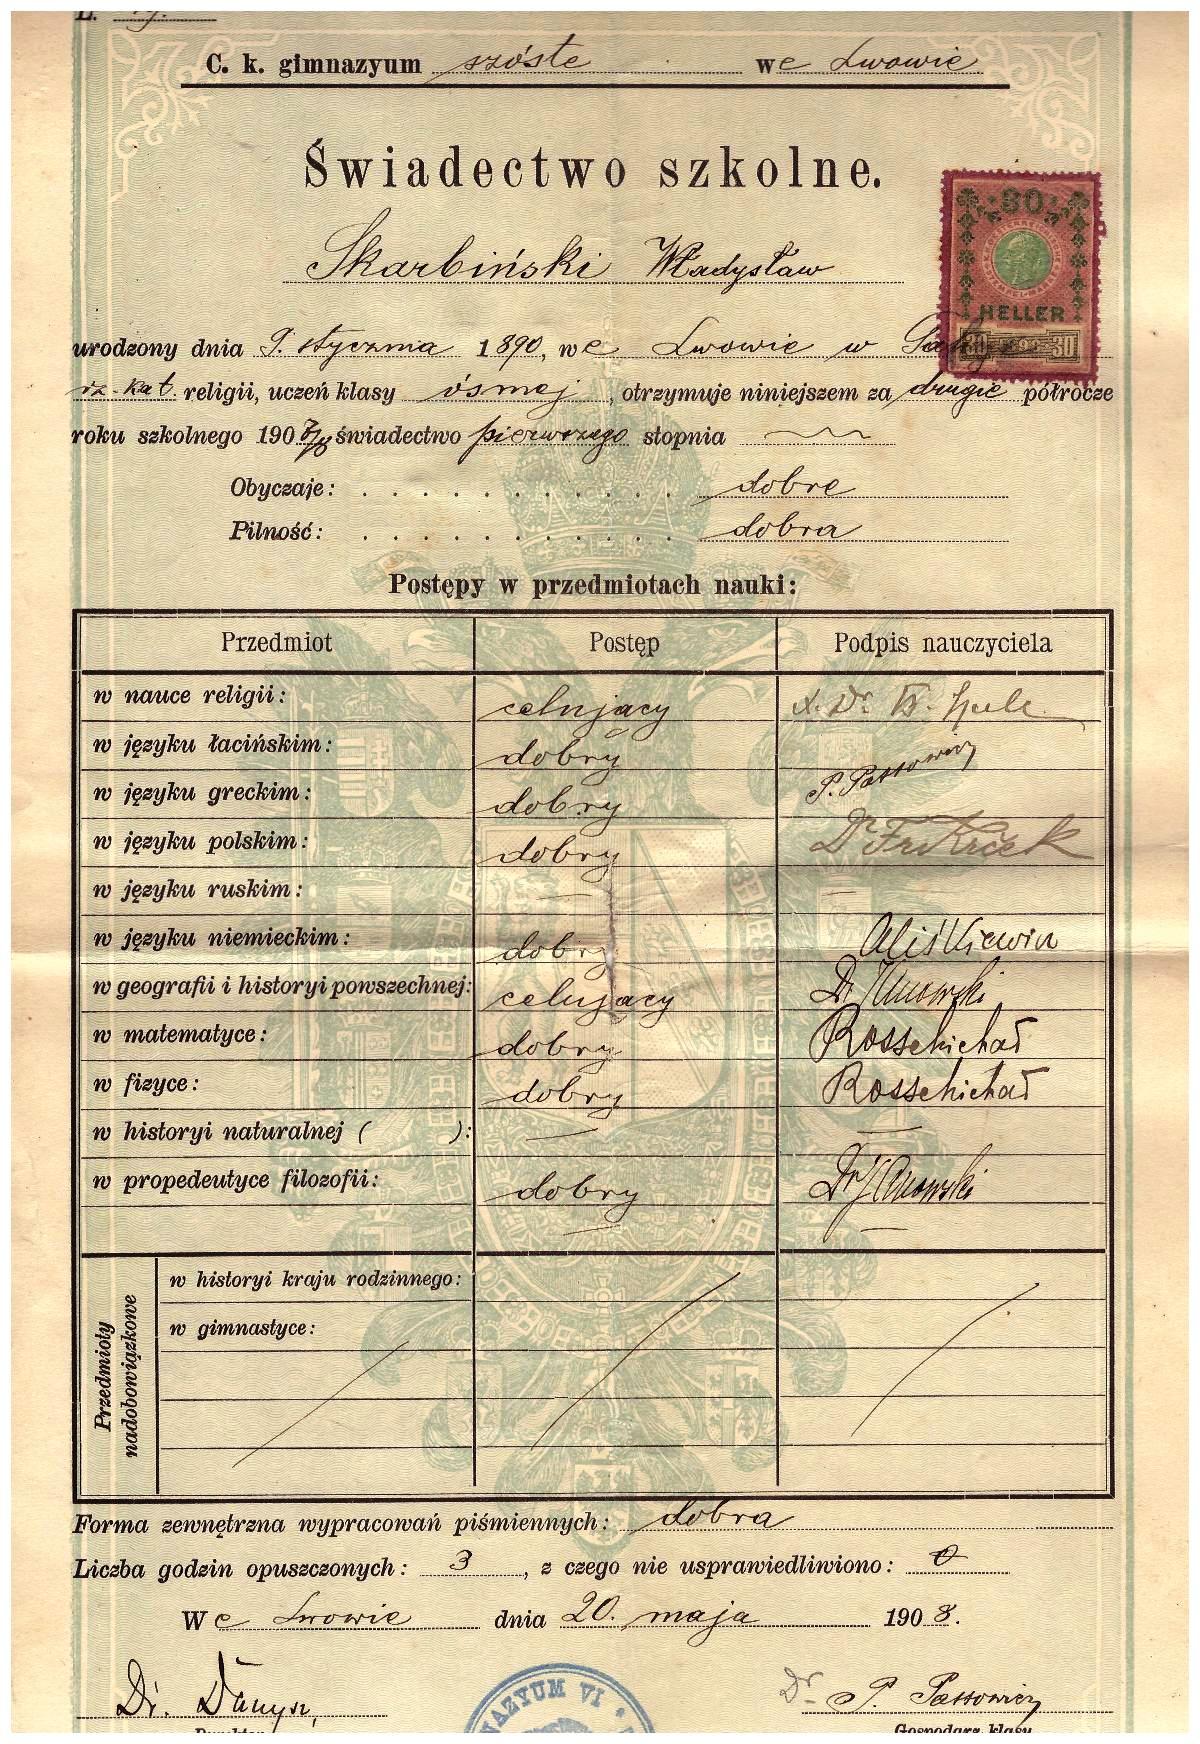 L. 19.
C. k. gimnazyum szóste we Lwowie
Świadectwo szkolne.
Skarbiński Władysław
30
HELLER
30 1898 30
urodzony dnia 9. stycznia 1890, we Lwowie w
rz.-kat. religii, uczeń klasy ósmej, otrzymuje niniejszem za drugie półrocze
roku szkolnego 1907/8 świadectwo pierwszego stopnia
Obyczaje: dobre
Pilność: dobra
Postępy w przedmiotach nauki:
Przedmiot Postęp Podpis nauczyciela
w nauce religii: celujący X. Dr.
w języku łacińskim: dobry P. Passowicz
w języku greckim: dobry
w języku polskim: dobry Dr Fr. Krček
w języku ruskim: —
w języku niemieckim: dobry Aliśkiewicz
w geografii i historyi powszechnej: celujący Dr Janowski
w matematyce: dobry
w fizyce: dobry
w historyi naturalnej ( ): —
w propedeutyce filozofii: dobry Dr Janowski
Przedmioty nadobowiązkowe
w historyi kraju rodzinnego:
w gimnastyce:
Forma zewnętrzna wypracowań piśmiennych: dobra
Liczba godzin opuszczonych: 3, z czego nie usprawiedliwiono: 0
We Lwowie dnia 20. maja 1908.
Dr. Danysz, Dr. P. Passowicz
GIMNAZYUM VI
Dyrektor Gospodarz klasy